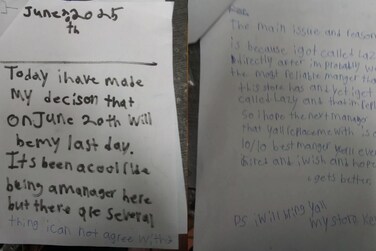 June 2025
th
Today i have made
My decison that
on June 20th will
be my last day.
Its been a cool ride
being a manager here
but there are several
thing i can not agree with
The main issue and reason
is because i got called Lazy
directly after im probably
the most reliable manger
this store has and yet i get
called Lazy and that in
So i hope the next manager
that you replace me with is a
10/10 best manger you'll ever
and i wish and hope
gets better
PS i will bring you
my store